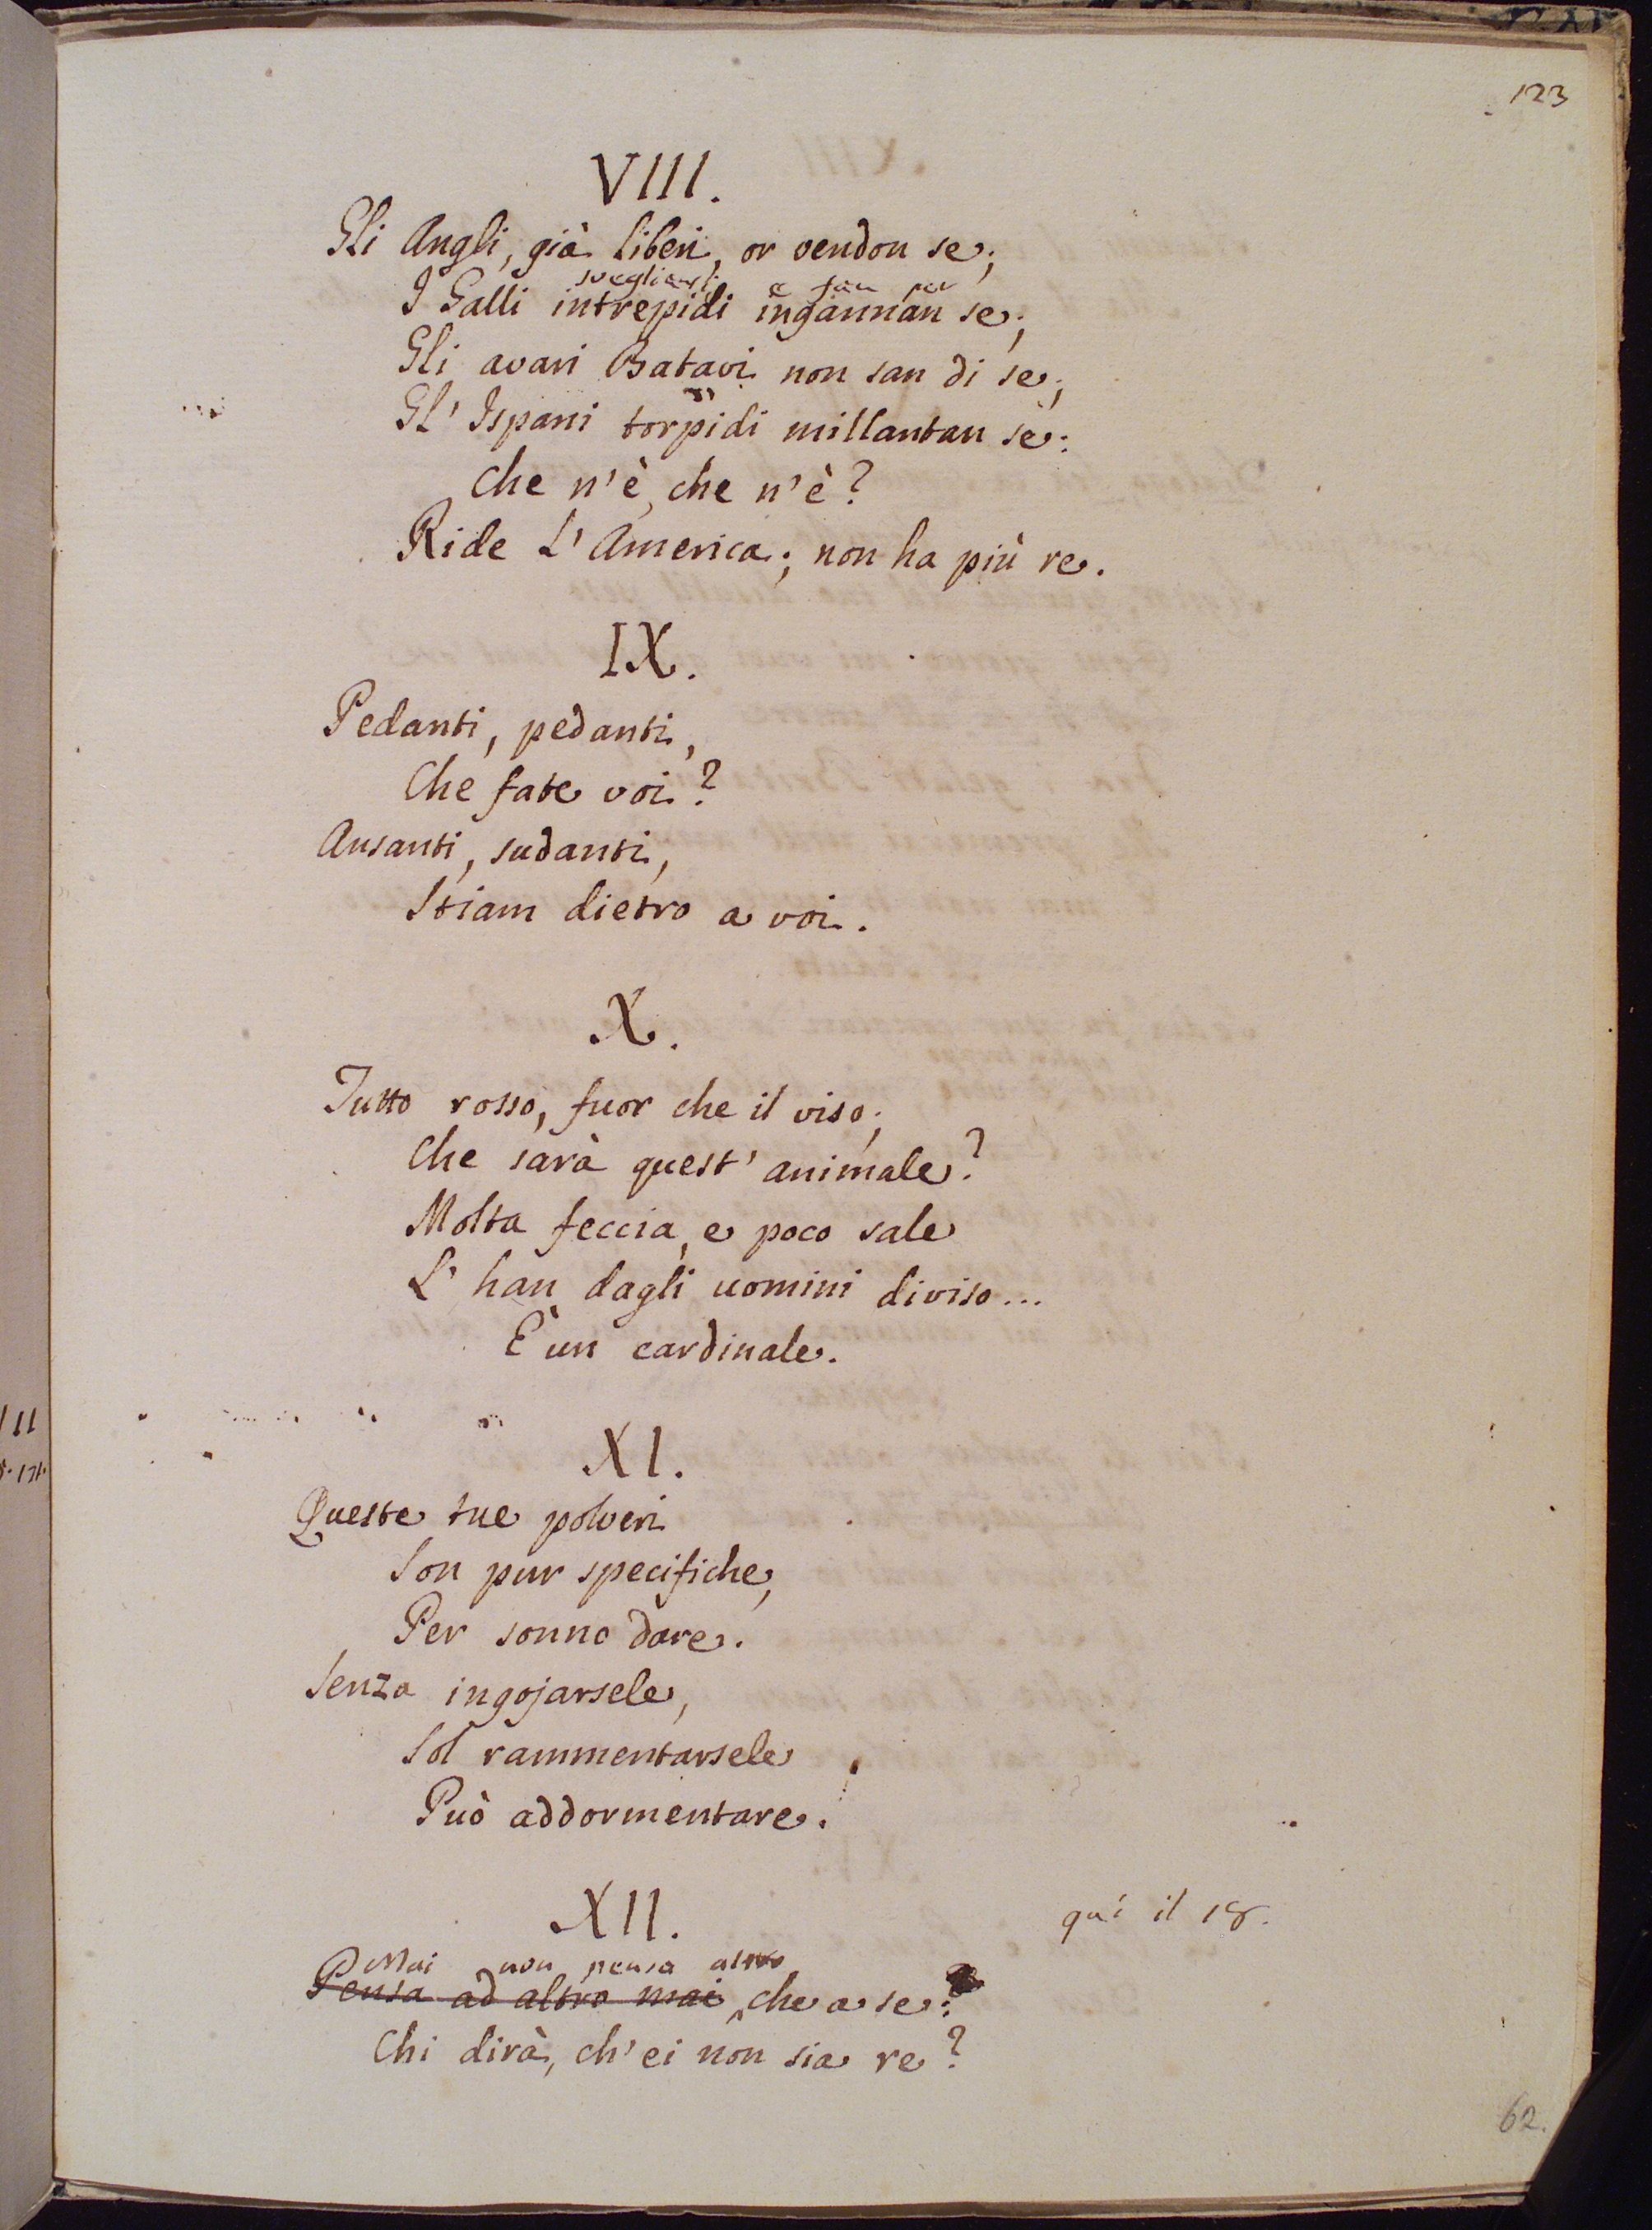 123
VIII.
Gli Angli, già liberi, or vendon se;
svegliansi e fan per
I Galli intrepidi ingannan se;
Gli avari Batavi non san di se;
Gl' Ispani torpidi millantan se:
Che n'è, che n'è?
Ride l'America; non ha più re.
IX.
Pedanti, pedanti,
Che fate voi?
Ansanti, sudanti,
Stiam dietro a voi.
X.
Tutto rosso, fuor che il viso;
Che sarà quest' animale?
Molta feccia, e poco sale
L' han dagli uomini diviso...
È un cardinale.
XI.
Queste tue polveri
Son pur specifiche,
Per sonno dare.
Senza ingojarsele,
Sol rammentarsele
Può addormentare.
XII.
quì il 18.
Mai non pensa altro
Pensa ad altro mai che a se:
Chi dirà, ch'ei non sia re?
62.